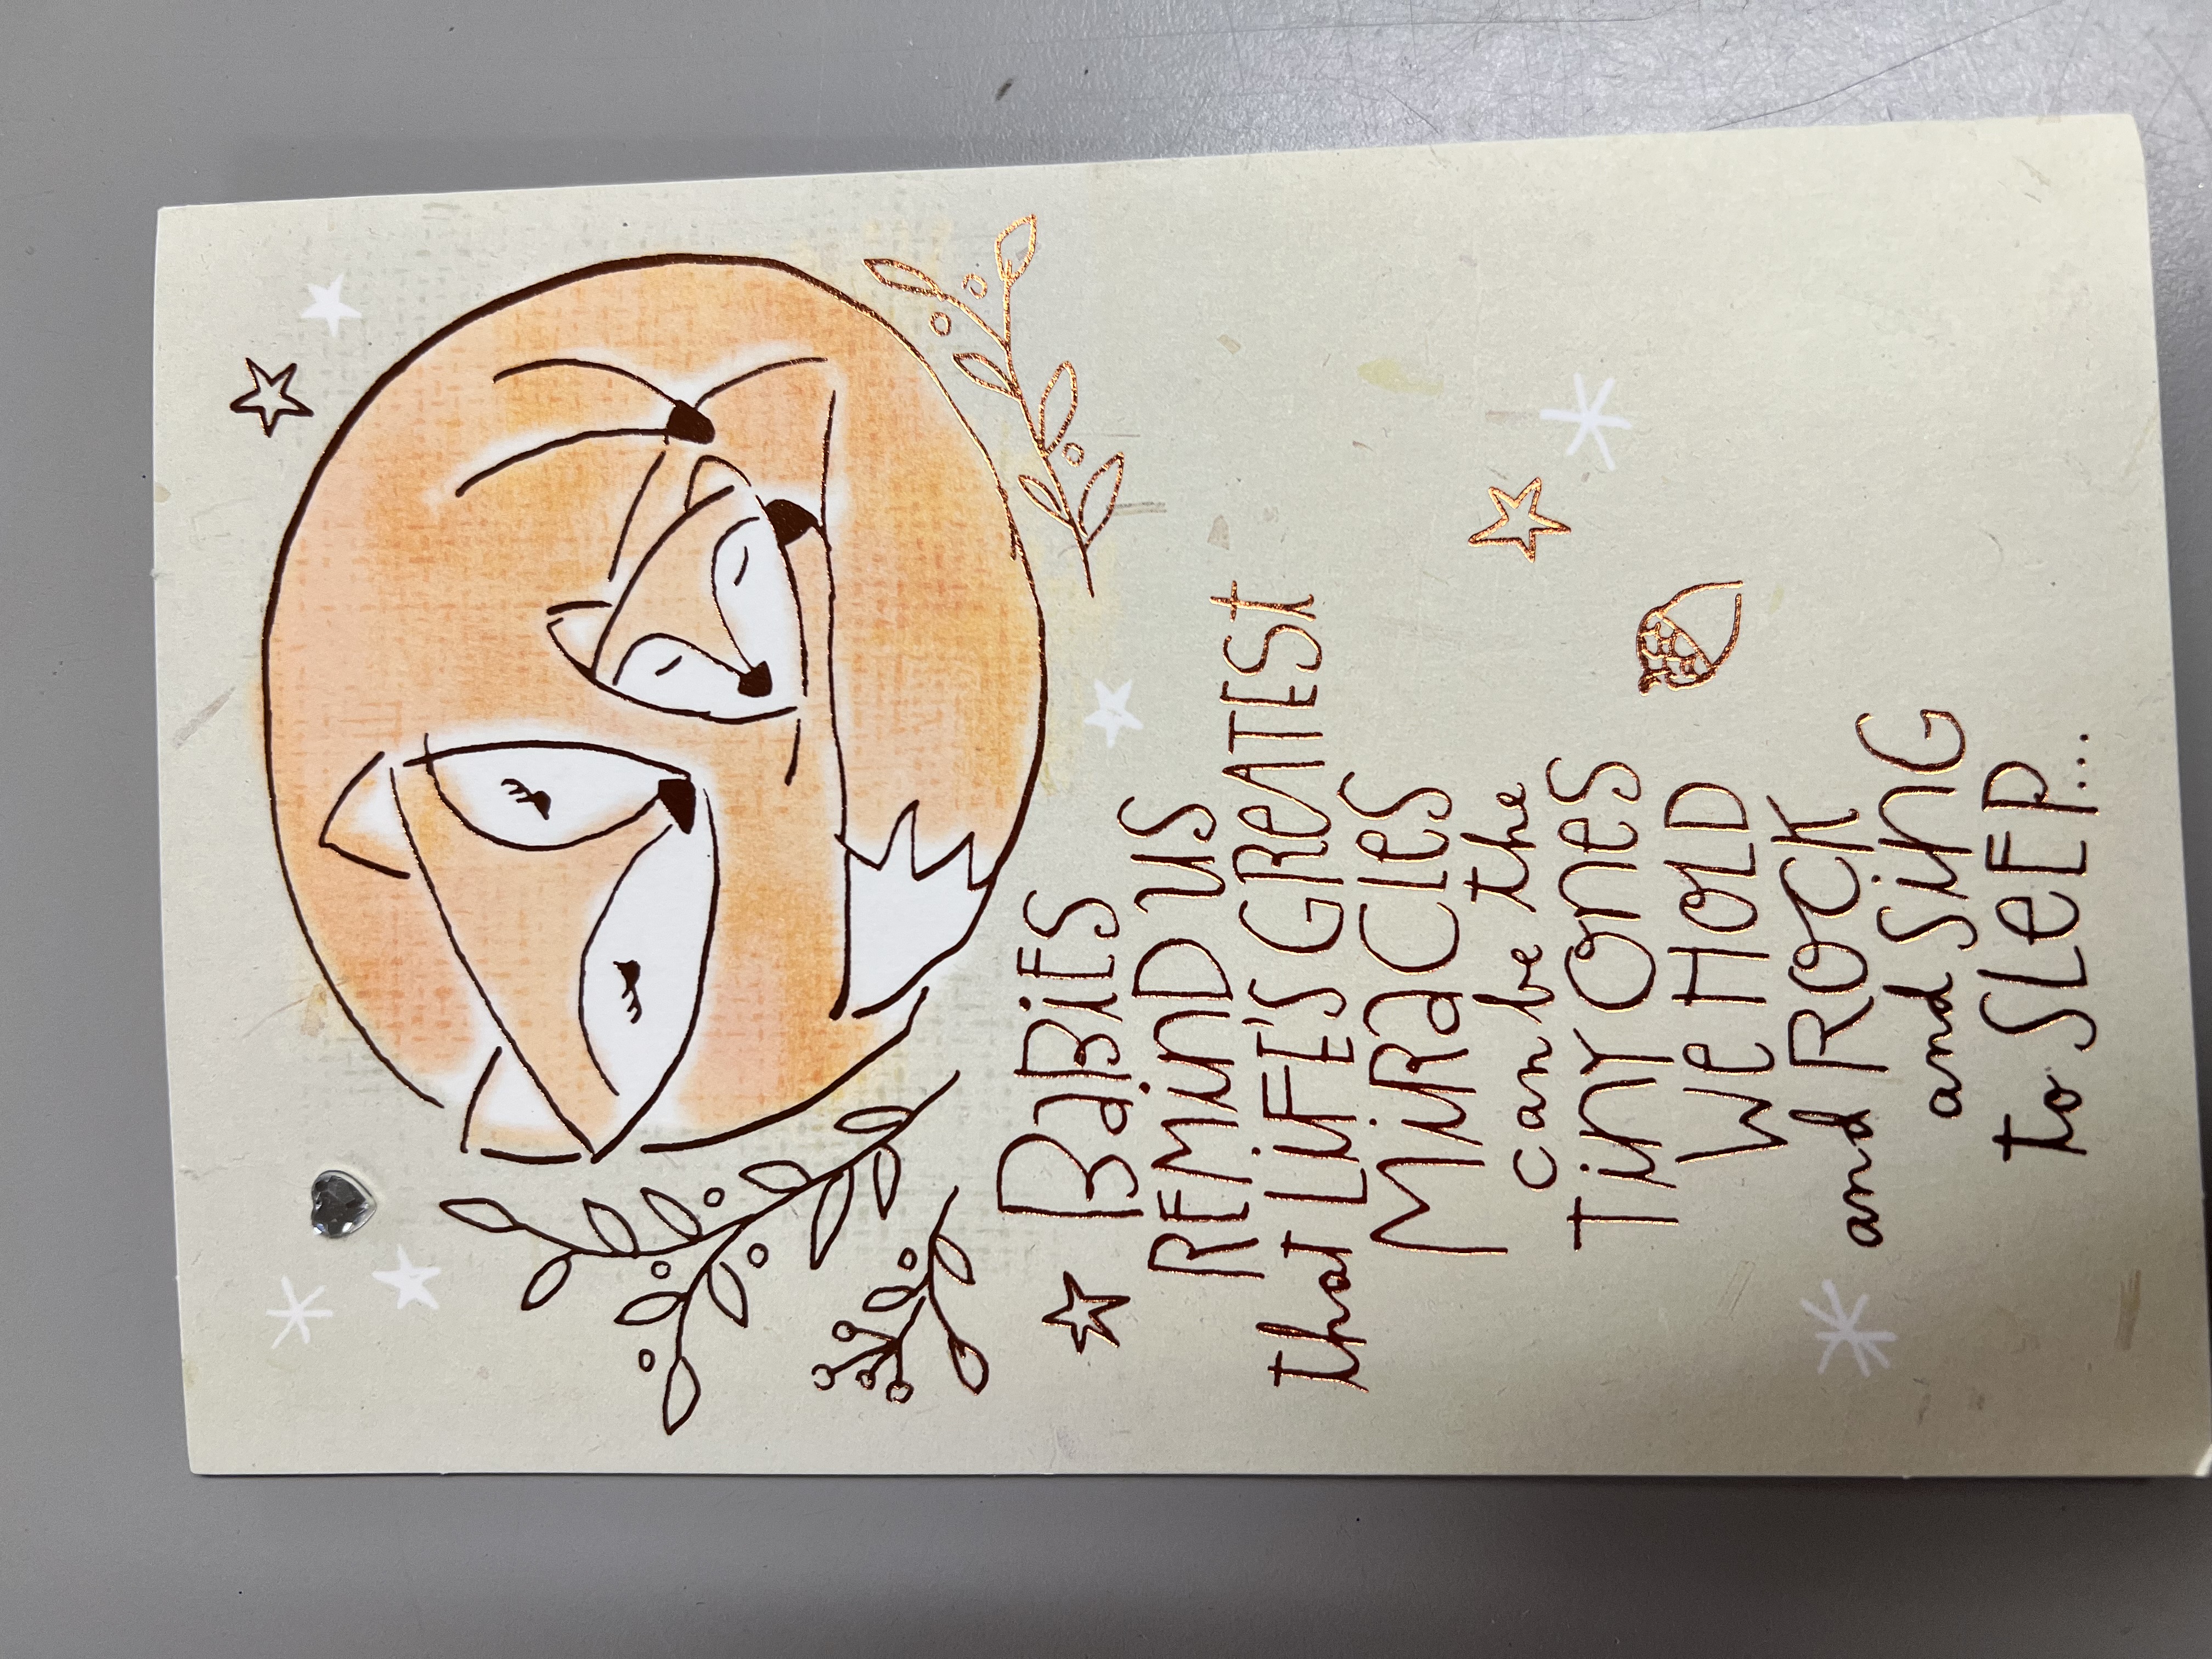 BaBiES
REMinD US
that LiFE'S GReATESt
MiRaCleS
can be the
Tiny OneS
We HOLD
and ROCK
and SinG
to SLeEP...